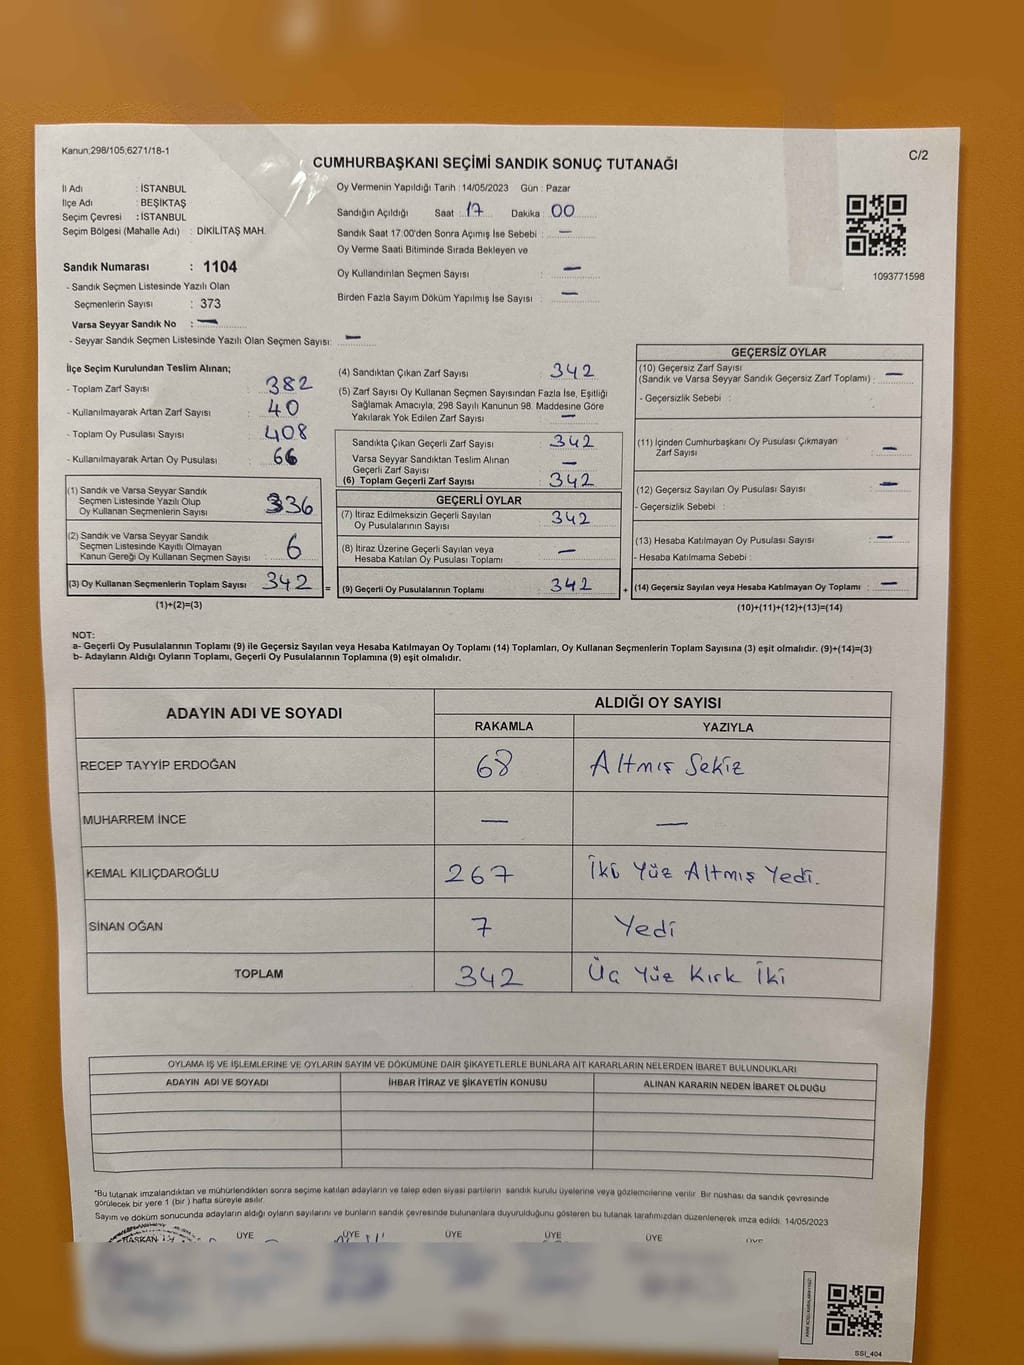 Kanun;298/105,6271/18-1
C/2
CUMHURBAŞKANI SEÇİMİ SANDIK SONUÇ TUTANAĞI
İl Adı : İSTANBUL
İlçe Adı : BEŞİKTAŞ
Seçim Çevresi : İSTANBUL
Seçim Bölgesi (Mahalle Adı) : DİKİLİTAŞ MAH.
Sandık Numarası : 1104
- Sandık Seçmen Listesinde Yazılı Olan
Seçmenlerin Sayısı : 373
Varsa Seyyar Sandık No : —
- Seyyar Sandık Seçmen Listesinde Yazılı Olan Seçmen Sayısı: —
Oy Vermenin Yapıldığı Tarih : 14/05/2023 Gün : Pazar
Sandığın Açıldığı Saat : 17 Dakika : 00
Sandık Saat 17:00'den Sonra Açımış İse Sebebi : —
Oy Verme Saati Bitiminde Sırada Bekleyen ve
Oy Kullandırılan Seçmen Sayısı : —
Birden Fazla Sayım Döküm Yapılmış İse Sayısı : —
1093771598
İlçe Seçim Kurulundan Teslim Alınan;
- Toplam Zarf Sayısı : 382
- Kullanılmayarak Artan Zarf Sayısı : 40
- Toplam Oy Pusulası Sayısı : 408
- Kullanılmayarak Artan Oy Pusulası : 66
(1) Sandık ve Varsa Seyyar Sandık
Seçmen Listesinde Yazılı Olup
Oy Kullanan Seçmenlerin Sayısı : 336
(2) Sandık ve Varsa Seyyar Sandık
Seçmen Listesinde Kayıtlı Olmayan
Kanun Gereği Oy Kullanan Seçmen Sayısı : 6
(3) Oy Kullanan Seçmenlerin Toplam Sayısı : 342 =
(1)+(2)=(3)
(4) Sandıktan Çıkan Zarf Sayısı : 342
(5) Zarf Sayısı Oy Kullanan Seçmen Sayısından Fazla İse, Eşitliği
Sağlamak Amacıyla, 298 Sayılı Kanunun 98. Maddesine Göre
Yakılarak Yok Edilen Zarf Sayısı : —
Sandıkta Çıkan Geçerli Zarf Sayısı : 342
Varsa Seyyar Sandıktan Teslim Alınan
Geçerli Zarf Sayısı : —
(6) Toplam Geçerli Zarf Sayısı : 342
GEÇERLİ OYLAR
(7) İtiraz Edilmeksizin Geçerli Sayılan
Oy Pusulalarının Sayısı : 342
(8) İtiraz Üzerine Geçerli Sayılan veya
Hesaba Katılan Oy Pusulası Toplamı : —
(9) Geçerli Oy Pusulalarının Toplamı : 342 +
GEÇERSİZ OYLAR
(10) Geçersiz Zarf Sayısı
(Sandık ve Varsa Seyyar Sandık Geçersiz Zarf Toplamı) : —
- Geçersizlik Sebebi :
(11) İçinden Cumhurbaşkanı Oy Pusulası Çıkmayan
Zarf Sayısı : —
(12) Geçersiz Sayılan Oy Pusulası Sayısı : —
- Geçersizlik Sebebi :
(13) Hesaba Katılmayan Oy Pusulası Sayısı : —
- Hesaba Katılmama Sebebi :
(14) Geçersiz Sayılan veya Hesaba Katılmayan Oy Toplamı : —
(10)+(11)+(12)+(13)=(14)
NOT:
a- Geçerli Oy Pusulalarının Toplamı (9) ile Geçersiz Sayılan veya Hesaba Katılmayan Oy Toplamı (14) Toplamları, Oy Kullanan Seçmenlerin Toplam Sayısına (3) eşit olmalıdır. (9)+(14)=(3)
b- Adayların Aldığı Oyların Toplamı, Geçerli Oy Pusulalarının Toplamına (9) eşit olmalıdır.
ADAYIN ADI VE SOYADI
ALDIĞI OY SAYISI
RAKAMLA YAZIYLA
RECEP TAYYİP ERDOĞAN 68 Altmış Sekiz
MUHARREM İNCE — —
KEMAL KILIÇDAROĞLU 267 İki Yüz Altmış Yedi.
SİNAN OĞAN 7 Yedi
TOPLAM 342 Üç Yüz Kırk İki
OYLAMA İŞ VE İŞLEMLERİNE VE OYLARIN SAYIM VE DÖKÜMÜNE DAİR ŞİKAYETLERLE BUNLARA AİT KARARLARIN NELERDEN İBARET BULUNDUKLARI
ADAYIN ADI VE SOYADI İHBAR İTİRAZ VE ŞİKAYETİN KONUSU ALINAN KARARIN NEDEN İBARET OLDUĞU
*Bu tutanak imzalandıktan ve mühürlendikten sonra seçime katılan adayların ve talep eden siyasi partilerin sandık kurulu üyelerine veya gözlemcilerine verilir. Bir nüshası da sandık çevresinde
görülecek bir yere 1 (bir ) hafta süreyle asılır.
Sayım ve döküm sonucunda adayların aldığı oyların sayılarını ve bunların sandık çevresinde bulunanlara duyurulduğunu gösteren bu tutanak tarafımızdan düzenlenerek imza edildi. 14/05/2023
BAŞKAN ÜYE ÜYE ÜYE ÜYE ÜYE ÜYE
SSI_404